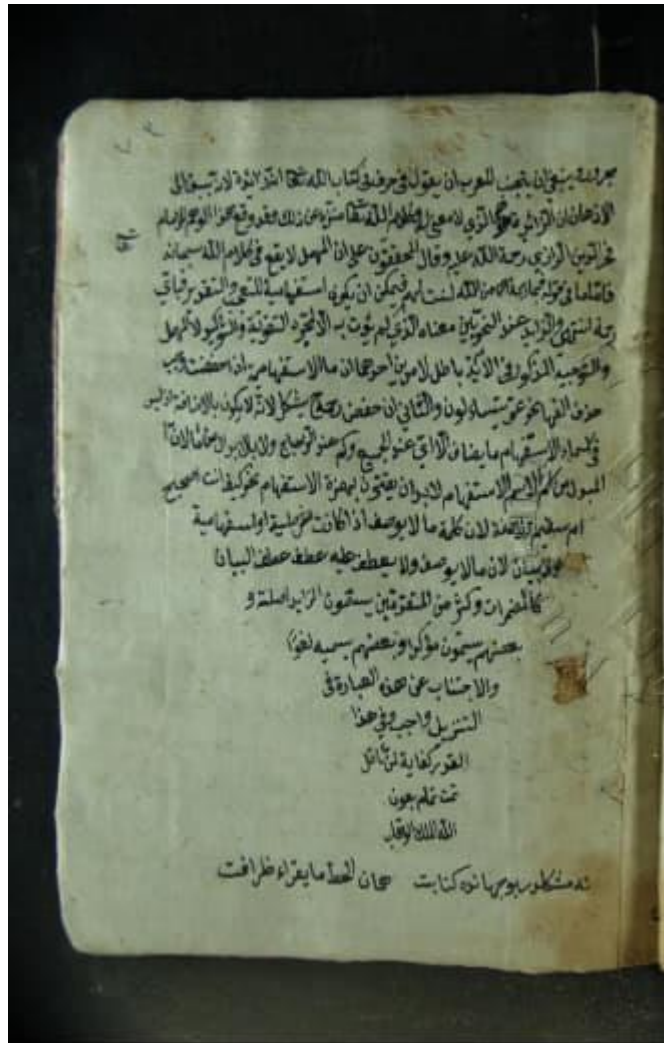 وينبغي ان يجتنب المعرب ان يقول في حرف في كتاب الله تعالى انه زائد لانه يسبق الى
الاذهان ان الزائد هو الذي لا معنى له وكلام الله تعالى منزه عن ذلك وقد وقع هذا الوهم للامام
فخر الدين الرازي رحمة الله عليه وقال المحققون على ان المهمل لا يقع في كلام الله سبحانه
فاما ما في قوله فبما رحمة من الله لنت لهم فيمكن ان يكون استفهامية للتعجب والتقدير فباي
رحمة انتهى والزايد عند النحويين معناه الذي لم يؤت به الا لمجرد التقوية والتوكيد لا المهمل
والتوجيه المذكور في الآية باطل لامرين احدهما ان ما الاستفهامية اذا خفضت وجب
حذف الفها نحو عم يتساءلون والثاني ان خفض رحمة مشكل لانه لا يكون بالاضافة اذ ليس
في اسماء الاستفهام ما يضاف الا اي عند الجميع وكم عند الزجاج ولا بالابدال من ما لان
المبدل من اسم الاستفهام لا بد ان يقترن بهمزة الاستفهام نحو كيف انت اصحيح
ام سقيم ولا صفة لان كلمة ما لا يوصف اذا كانت شرطية او استفهامية
ولا بيان لان ما لا يوصف لا يعطف عليه عطف البيان
كالمضمرات وكثير من المتقدمين يسمون الزايد صلة و
بعضهم يسمون مؤكدا وبعضهم يسميه لغوا
والاجتناب عن هذه العبارة في
التنزيل واجب وفي هذا
القدر كفاية لمن تأمل
تمت تمام بعون
الله الملك الوهاب
كتابت ما يقراء ظرافت